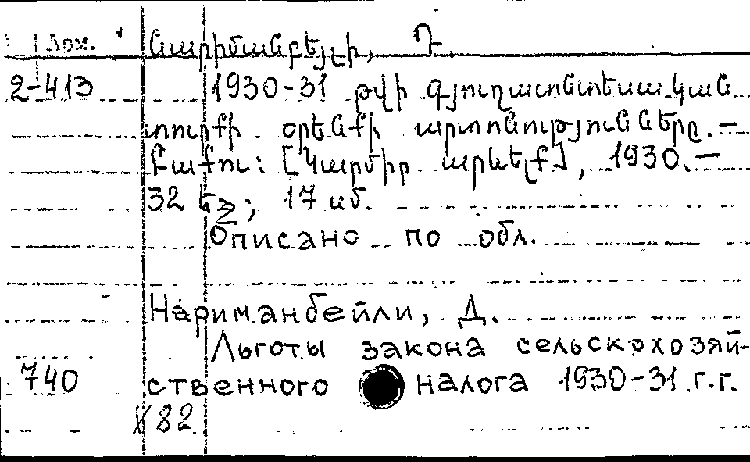 Зох. Նարիմանբեյլի, Դ.
2-413 1930-31 թվի գյուղատնտեսական
տուրքի օրենքի արտոնությունները.—
Բաքու: [Կարմիր արևելք], 1930.—
32 եջ; 17 սմ.
Описано по обл.
Нариманбейли, Д.
Льготы закона сельскохозяй-
740 ственного налога 1930-31 г.г.
82